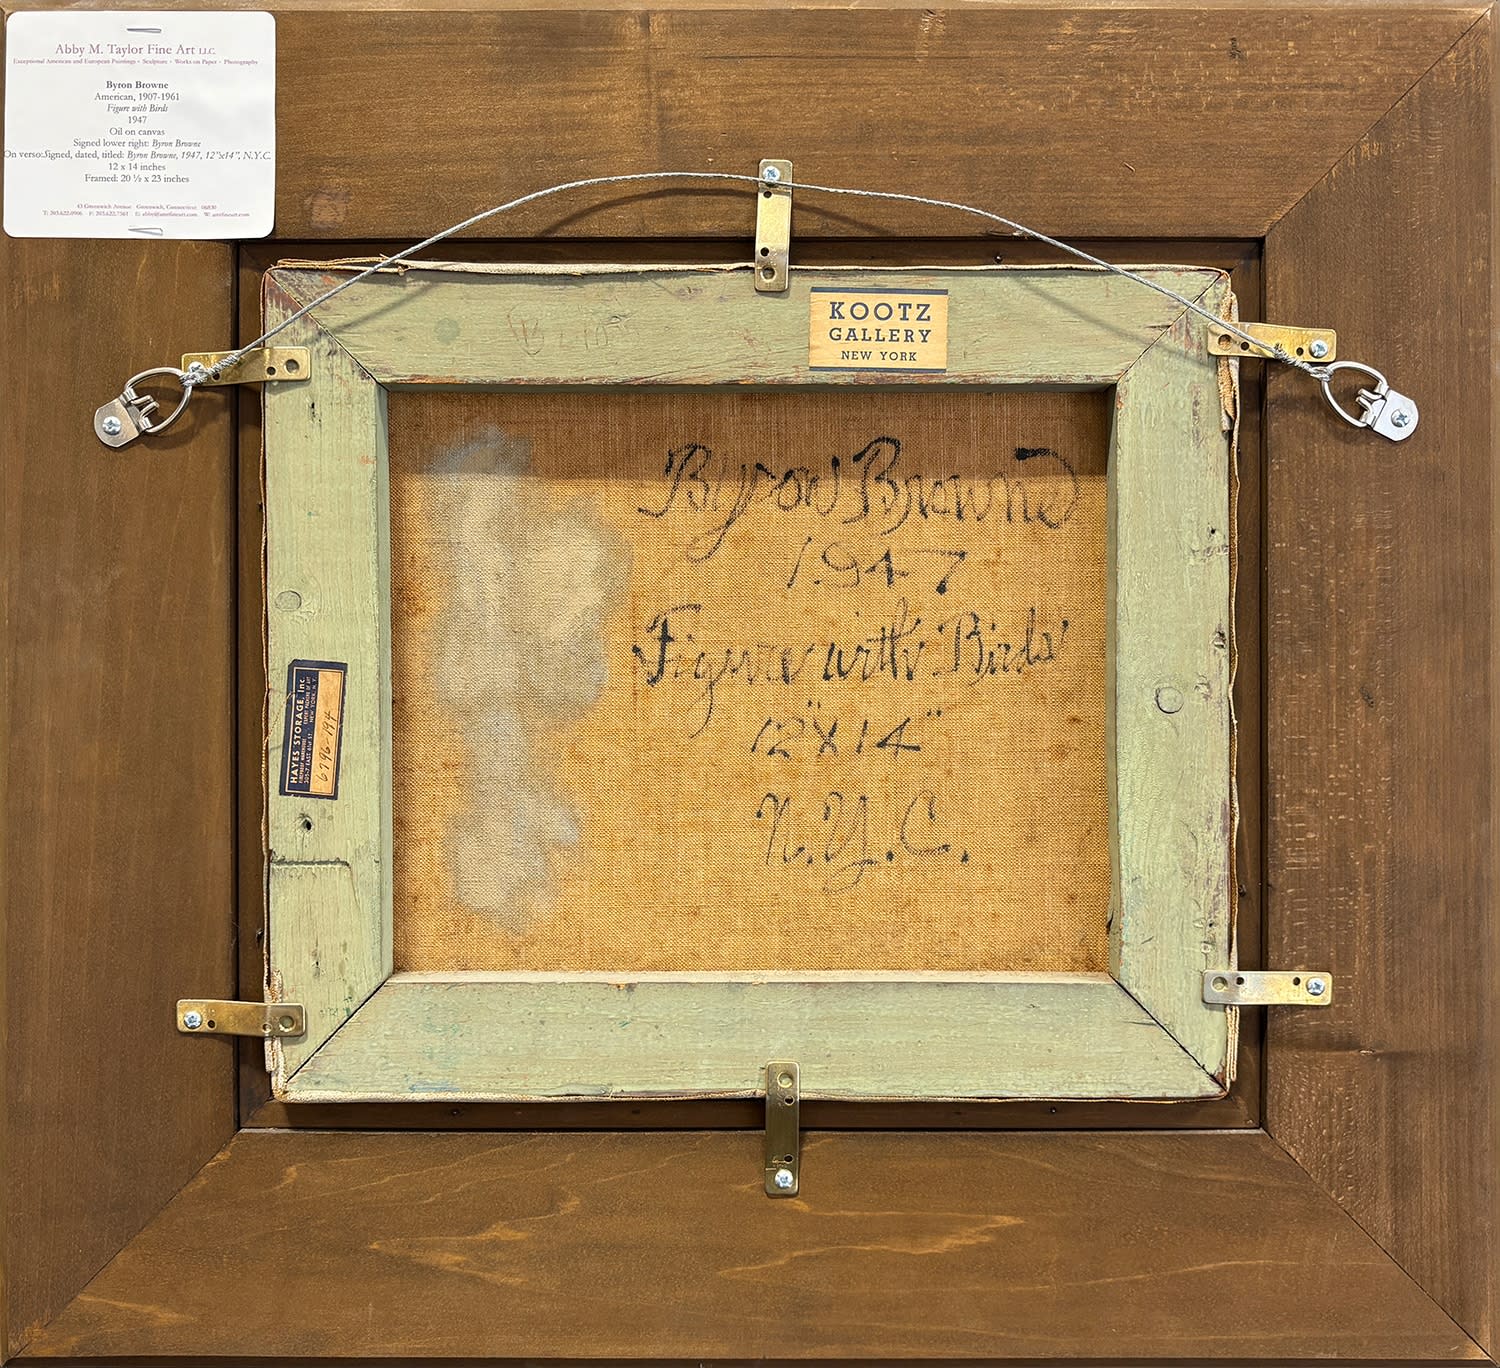 Abby M. Taylor Fine Art LLC.
Exceptional American and European Paintings · Sculpture · Works on Paper · Photography
Byron Browne
American, 1907-1961
Figure with Birds
1947
Oil on canvas
Signed lower right: Byron Browne
On verso:Signed, dated, titled: Byron Browne, 1947, 12"x14", N.Y.C.
12 x 14 inches
Framed: 20 ½ x 23 inches
43 Greenwich Avenue Greenwich, Connecticut 06830
T: 203.622.0906 F: 203.622.7561 E: abby@amtfineart.com W: amtfineart.com
KOOTZ
GALLERY
NEW YORK
Byron Browne
1947
Figure with Birds
12" X 14"
N.Y.C.
HAYES STORAGE, Inc.
FIREPROOF WAREHOUSE
EXPERT PACKERS OF ART
305-7 EAST 61st ST.
NEW YORK, N.Y.
6796-194